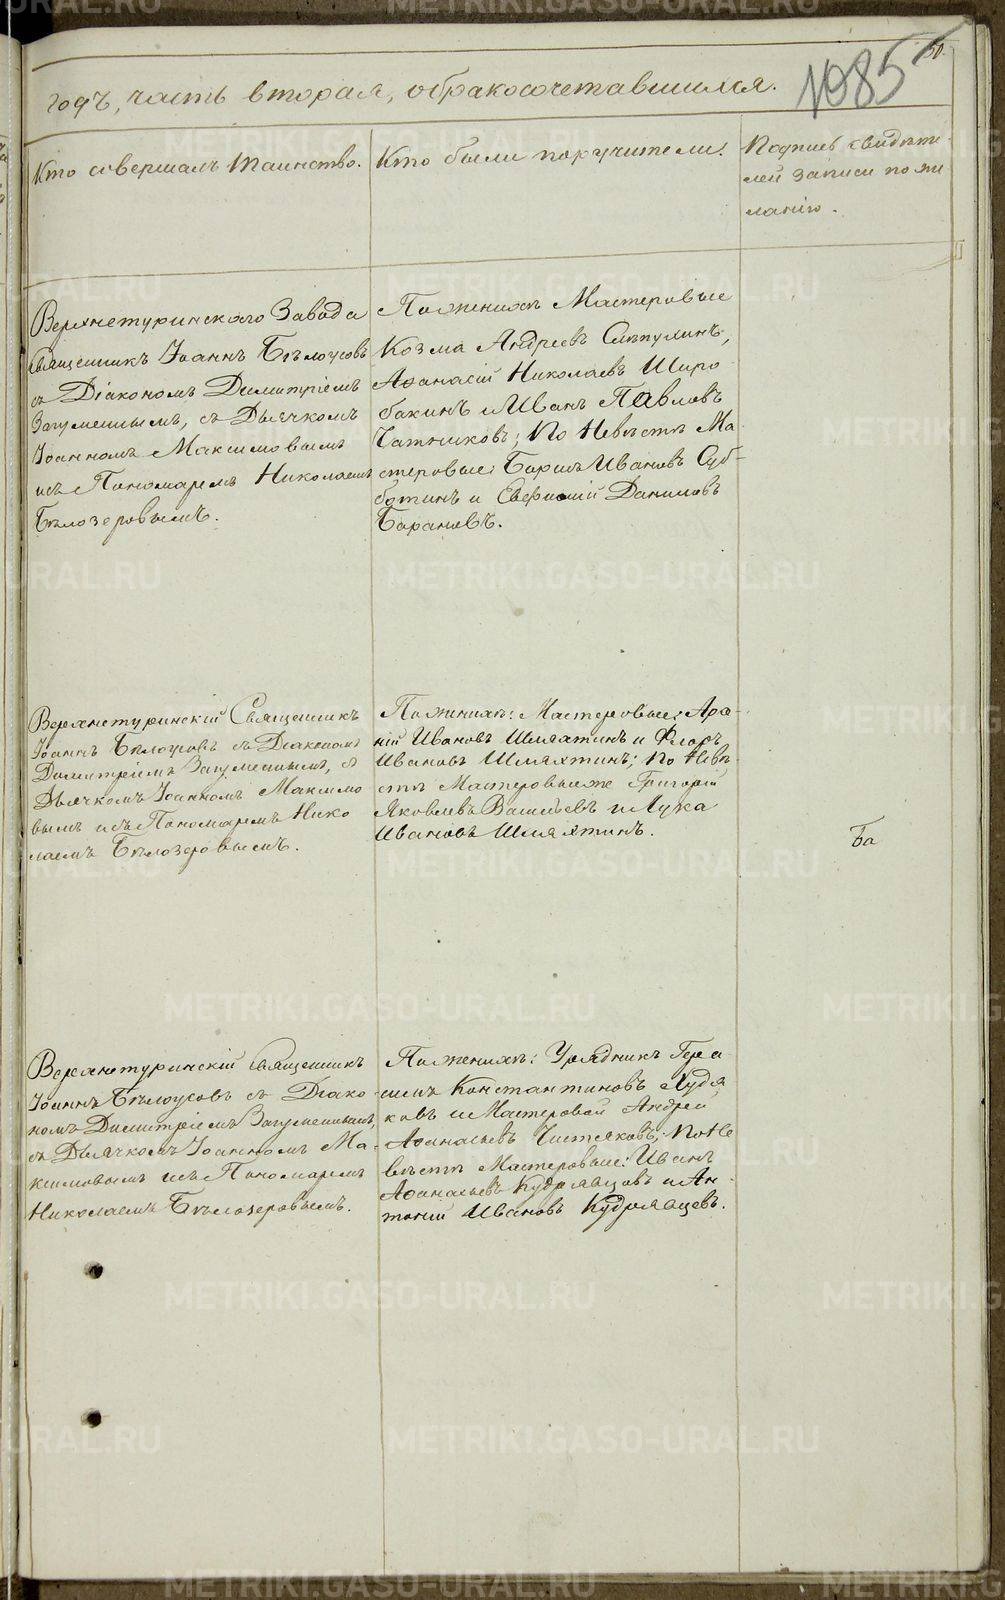 50.
1085
годъ, часть вторая, о бракосочетавшихся.
Кто совершалъ таинство.
Кто были поручители.
Подпись свидѣте
лей записи по же
ланію.
Верхнетуринскаго Завода
Священникъ Іоаннъ Бѣлоусовъ
съ Діакономъ Димитріемъ
Загуменнымъ, съ Дьячкомъ
Іоанномъ Максимовымъ
исъ Пономаремъ Николаемъ
Бѣлозеровымъ.
По женихѣ Мастеровые
Козма Андреевъ
Аѳанасій Николаевъ Широ
бакинъ и Иванъ Павловъ
по Невѣстѣ Ма
стеровые: Борисъ Ивановъ Суб-
ботинъ и Евфимій Даниловъ
Барановъ.
Верхнетуринскій Священникъ
Іоаннъ Бѣлоусовъ съ Діакономъ
Димитріемъ Загуменнымъ, съ
Дьячкомъ Іоанномъ Максимо
вымъ исъ Пономаремъ Нико
лаемъ Бѣлозеровымъ.
По женихѣ: Мастеровые:
Ивановъ Шляхтинъ и Флоръ
Ивановъ Шляхтинъ; по Невѣ
стѣ Мастеровые же Григорій
Яковлевъ Васильевъ и Лука
Ивановъ Шляхтинъ.
Ба
Верхнетуринскій Священникъ
Іоаннъ Бѣлоусовъ съ Діако
номъ Димитріемъ Загуменнымъ,
съ Дьячкомъ Іоанномъ Ма-
ксимовымъ исъ Пономаремъ
Николаемъ Бѣлозеровымъ.
По женихѣ: Урядникъ Гера
симъ Константиновъ Худя
ковъ и Мастеровой Андрей
Аѳанасьевъ Чистяковъ; по Не
вѣстѣ Мастеровые: Иванъ
Аѳанасьевъ Кудрявцовъ и Ан-
тоній Ивановъ Кудрявцевъ.